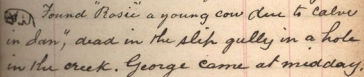 Found "Rosie" a young cow due to calve
in Jan", dead in the slip gully in a hole
in the creek. George came at midday.